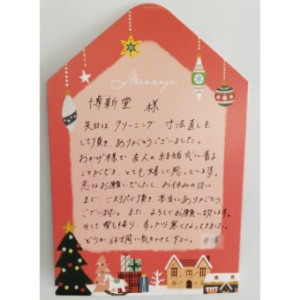 Message
博新堂 様
先日は クリーニング 寸法直しを
して頂き ありがとうございました。
おかげ様で 友人の結婚式に着る
ことができ、とても嬉しく思っています。
急なお願いでしたし、お休みの日に
まで ご対応頂き 本当にありがとう
ございます。また よろしくお願い致します。
寒くなってきました
どうか お体に気をつけて下さい。